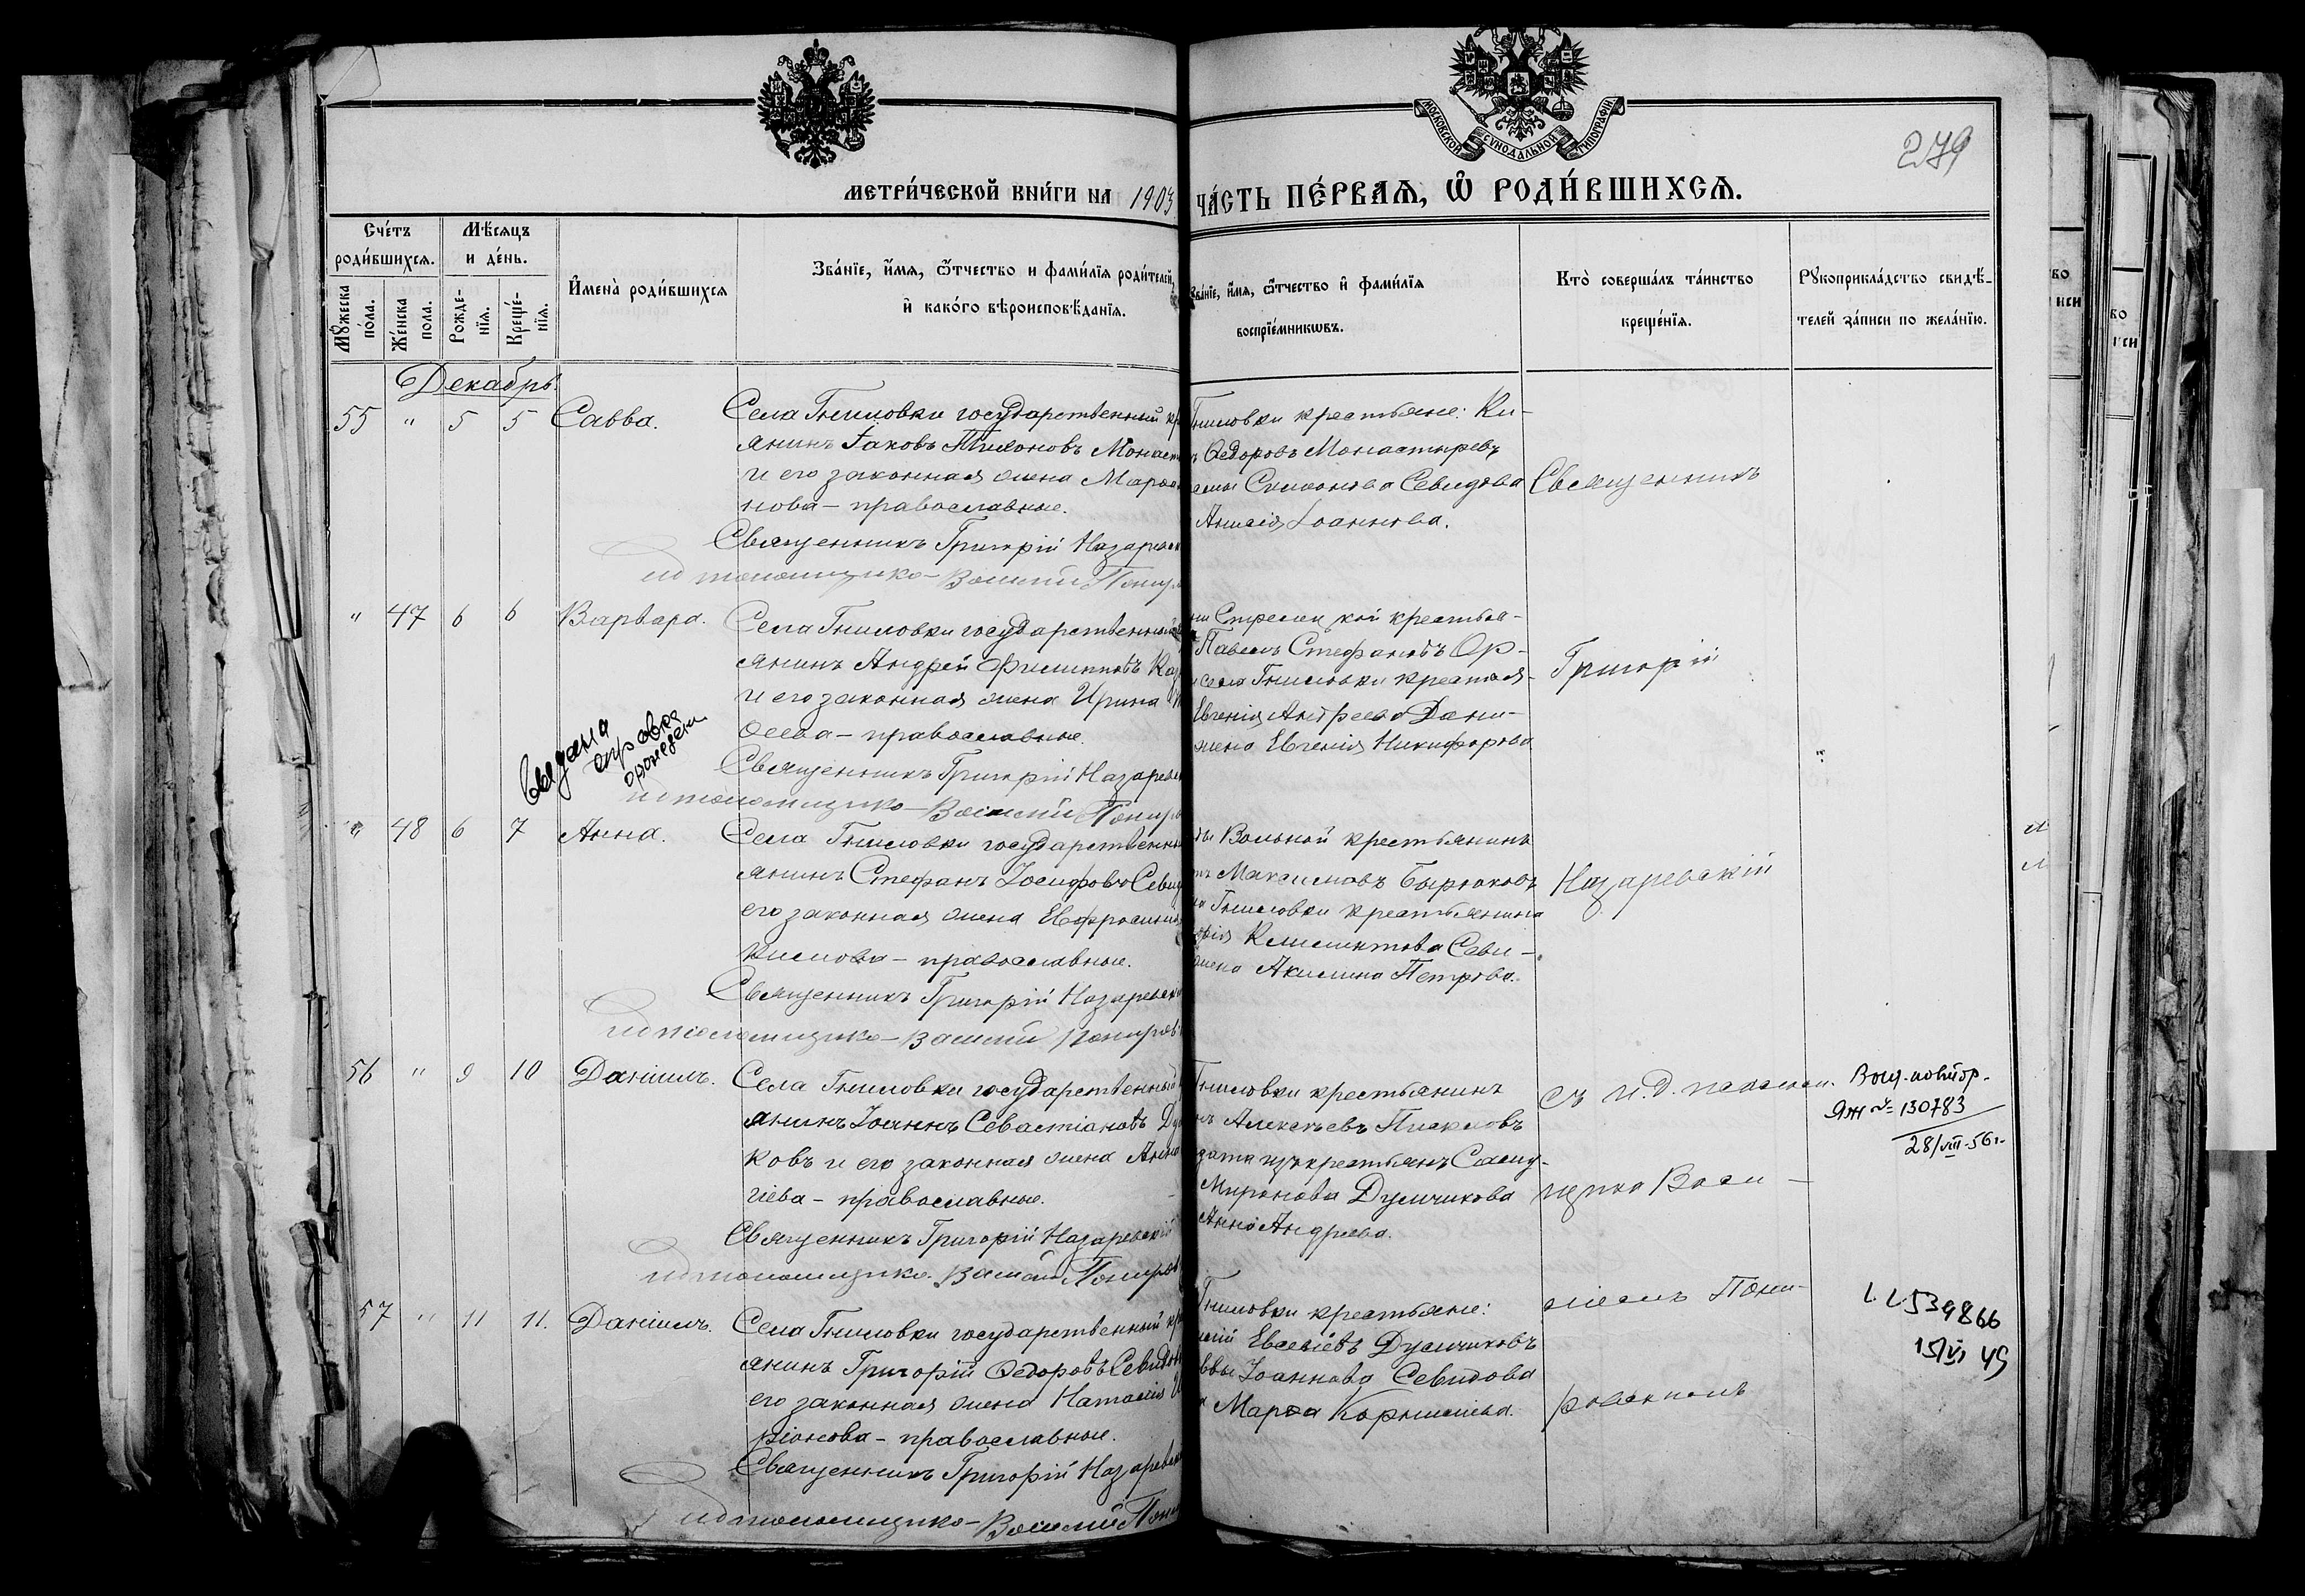 МОСКОВСКОЙ СУНОДАЛЬНОЙ ТИПОГРАФІИ
279
МЕТРИ́ЧЕСКОЙ КНИ́ГИ НА 1903
ЧА́СТЬ ПЕ́РВАЯ, Ѿ РОДИ́ВШИХСЯ.
Сче́тъ роди́вшихся.
Мѣ́сяцъ и де́нь.
Мꙋ́жеска по́ла.
Же́нска пола.
Рожде́-нїѧ.
Креще́-нїѧ.
И҆мена̀ роди́вшихся
Зва́нїе, и҆́мя, ѻ҆́тчество и фами́лїя роди́телей,
и҆ како́го вѣроисповѣ́данїя.
Зва́нїе, и҆́мя, ѻ҆́тчество и҆ фами́лїя
воспрїе́мникѡвъ.
Кто̀ соверша́лъ та́инство
креще́нїя.
Рꙋкоприкла́дство свидѣ́-
телей за́писи по жела́нїю.
Декабрь.
55 " 5 5 Савва.
Села Гниловки государственный кр
янинъ Іаковъ Тихоновъ Монаст
и его законная жена Марѳа
нова – православные.
Священникъ Григорій Назаревск
ид псаломщика – Василій Понир
Гниловки крестьяне: Ки-
Ѳедоровъ Монастыревъ
Симонова Севидова
Іоаннова.
Священникъ
" 47 6 6 Варвара.
Села Гниловки государственный
янинъ Андрей Филипповъ Каз
и его законная жена Ирина
сеева – православные.
Священникъ Григорій Назаревск
ид псаломщика – Василій Понир
Стрелецкой крестья-
Павелъ Стефановъ Ор-
села Гниловки крестья-
Евгенія Андреева Дани-
жена Евгенія Никифорова
Григорій
Выдана
справка
о рожден
" 48 6 7 Анна.
Села Гниловки государственны
янинъ Стефанъ Іосифовъ Севид
его законная жена Евфросинія
кимова – православные.
Священникъ Григорій Назаревск
ид псаломщика – Василій Пониров
Вольной крестьянинъ
Максимовъ Бирюковъ
Гниловки крестьянина
Климентова Севи-
жена Акилина Петрова.
Назаревскій
56 " 9 10 Даніилъ.
Села Гниловки государственный
янинъ Іоаннъ Севастіановъ Ду
ковъ и его законная жена Анна
гіева – православные.
Священникъ Григорій Назаревскій
ид псаломщика. Василій Пониров
Гниловки крестьянинъ
Алексѣевъ Пискловъ
изъ крестьянъ
Миронова Думчикова
Анна Андреева.
съ и. д. псалом-
щика Васи-
Выд. повтор.
ЯЖ № 130783
28/VIII-56г.
57 " 11 11. Даніилъ.
Села Гниловки государственный кр
янинъ Григорій Ѳедоровъ Севидов
его законная жена Наталія И
ріонова – православные.
Священникъ Григорій Назаревск
ид псаломщика – Василій Пони
Гниловки крестьяне:
Евсевіевъ Думчиковъ
Іоаннова Севидова
Марѳа Корнилиева.
ліемъ Пони-
ровскимъ
539866
15/VI 49